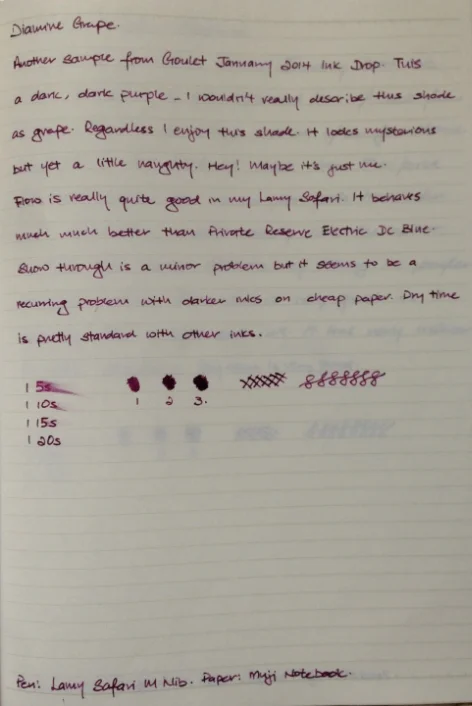 Diamine Grape.
Another sample from Goulet January 2014 Ink Drop. This
a dark, dark purple - I wouldn't really describe this shade
as grape. Regardless I enjoy this shade. It looks mysterious
but yet a little naughty. Hey! Maybe it's just me.
Flow is really quite good in my Lamy Safari. It behaves
much much better than Private Reserve Electric DC Blue.
Show through is a minor problem but it seems to be a
recurring problem with darker inks on cheap paper. Dry time
is pretty standard with other inks.
| 5s
| 10s
| 15s
| 20s
1 2 3.
Pen: Lamy Safari M Nib. Paper: Muji Notebook.